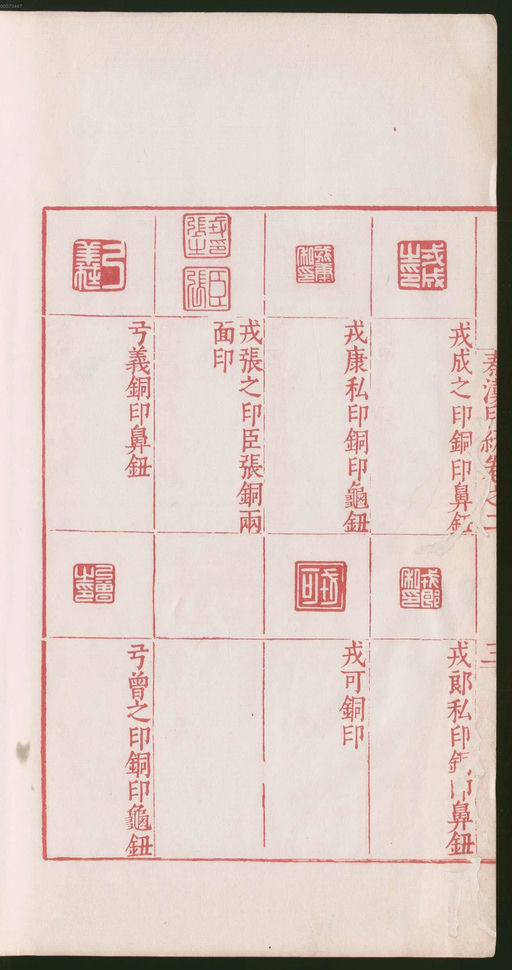 00073447
秦漢印統卷之二
三
戎成之印銅印鼻鈕
戎郎私印銅印鼻鈕
戎康私印銅印龜鈕
戎可銅印
戎張之印臣張銅兩
面印
弓義銅印鼻鈕
弓曾之印銅印龜鈕